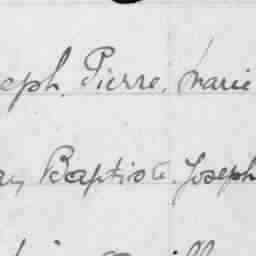 eph. Pierre. Marie
Baptiste. Joseph